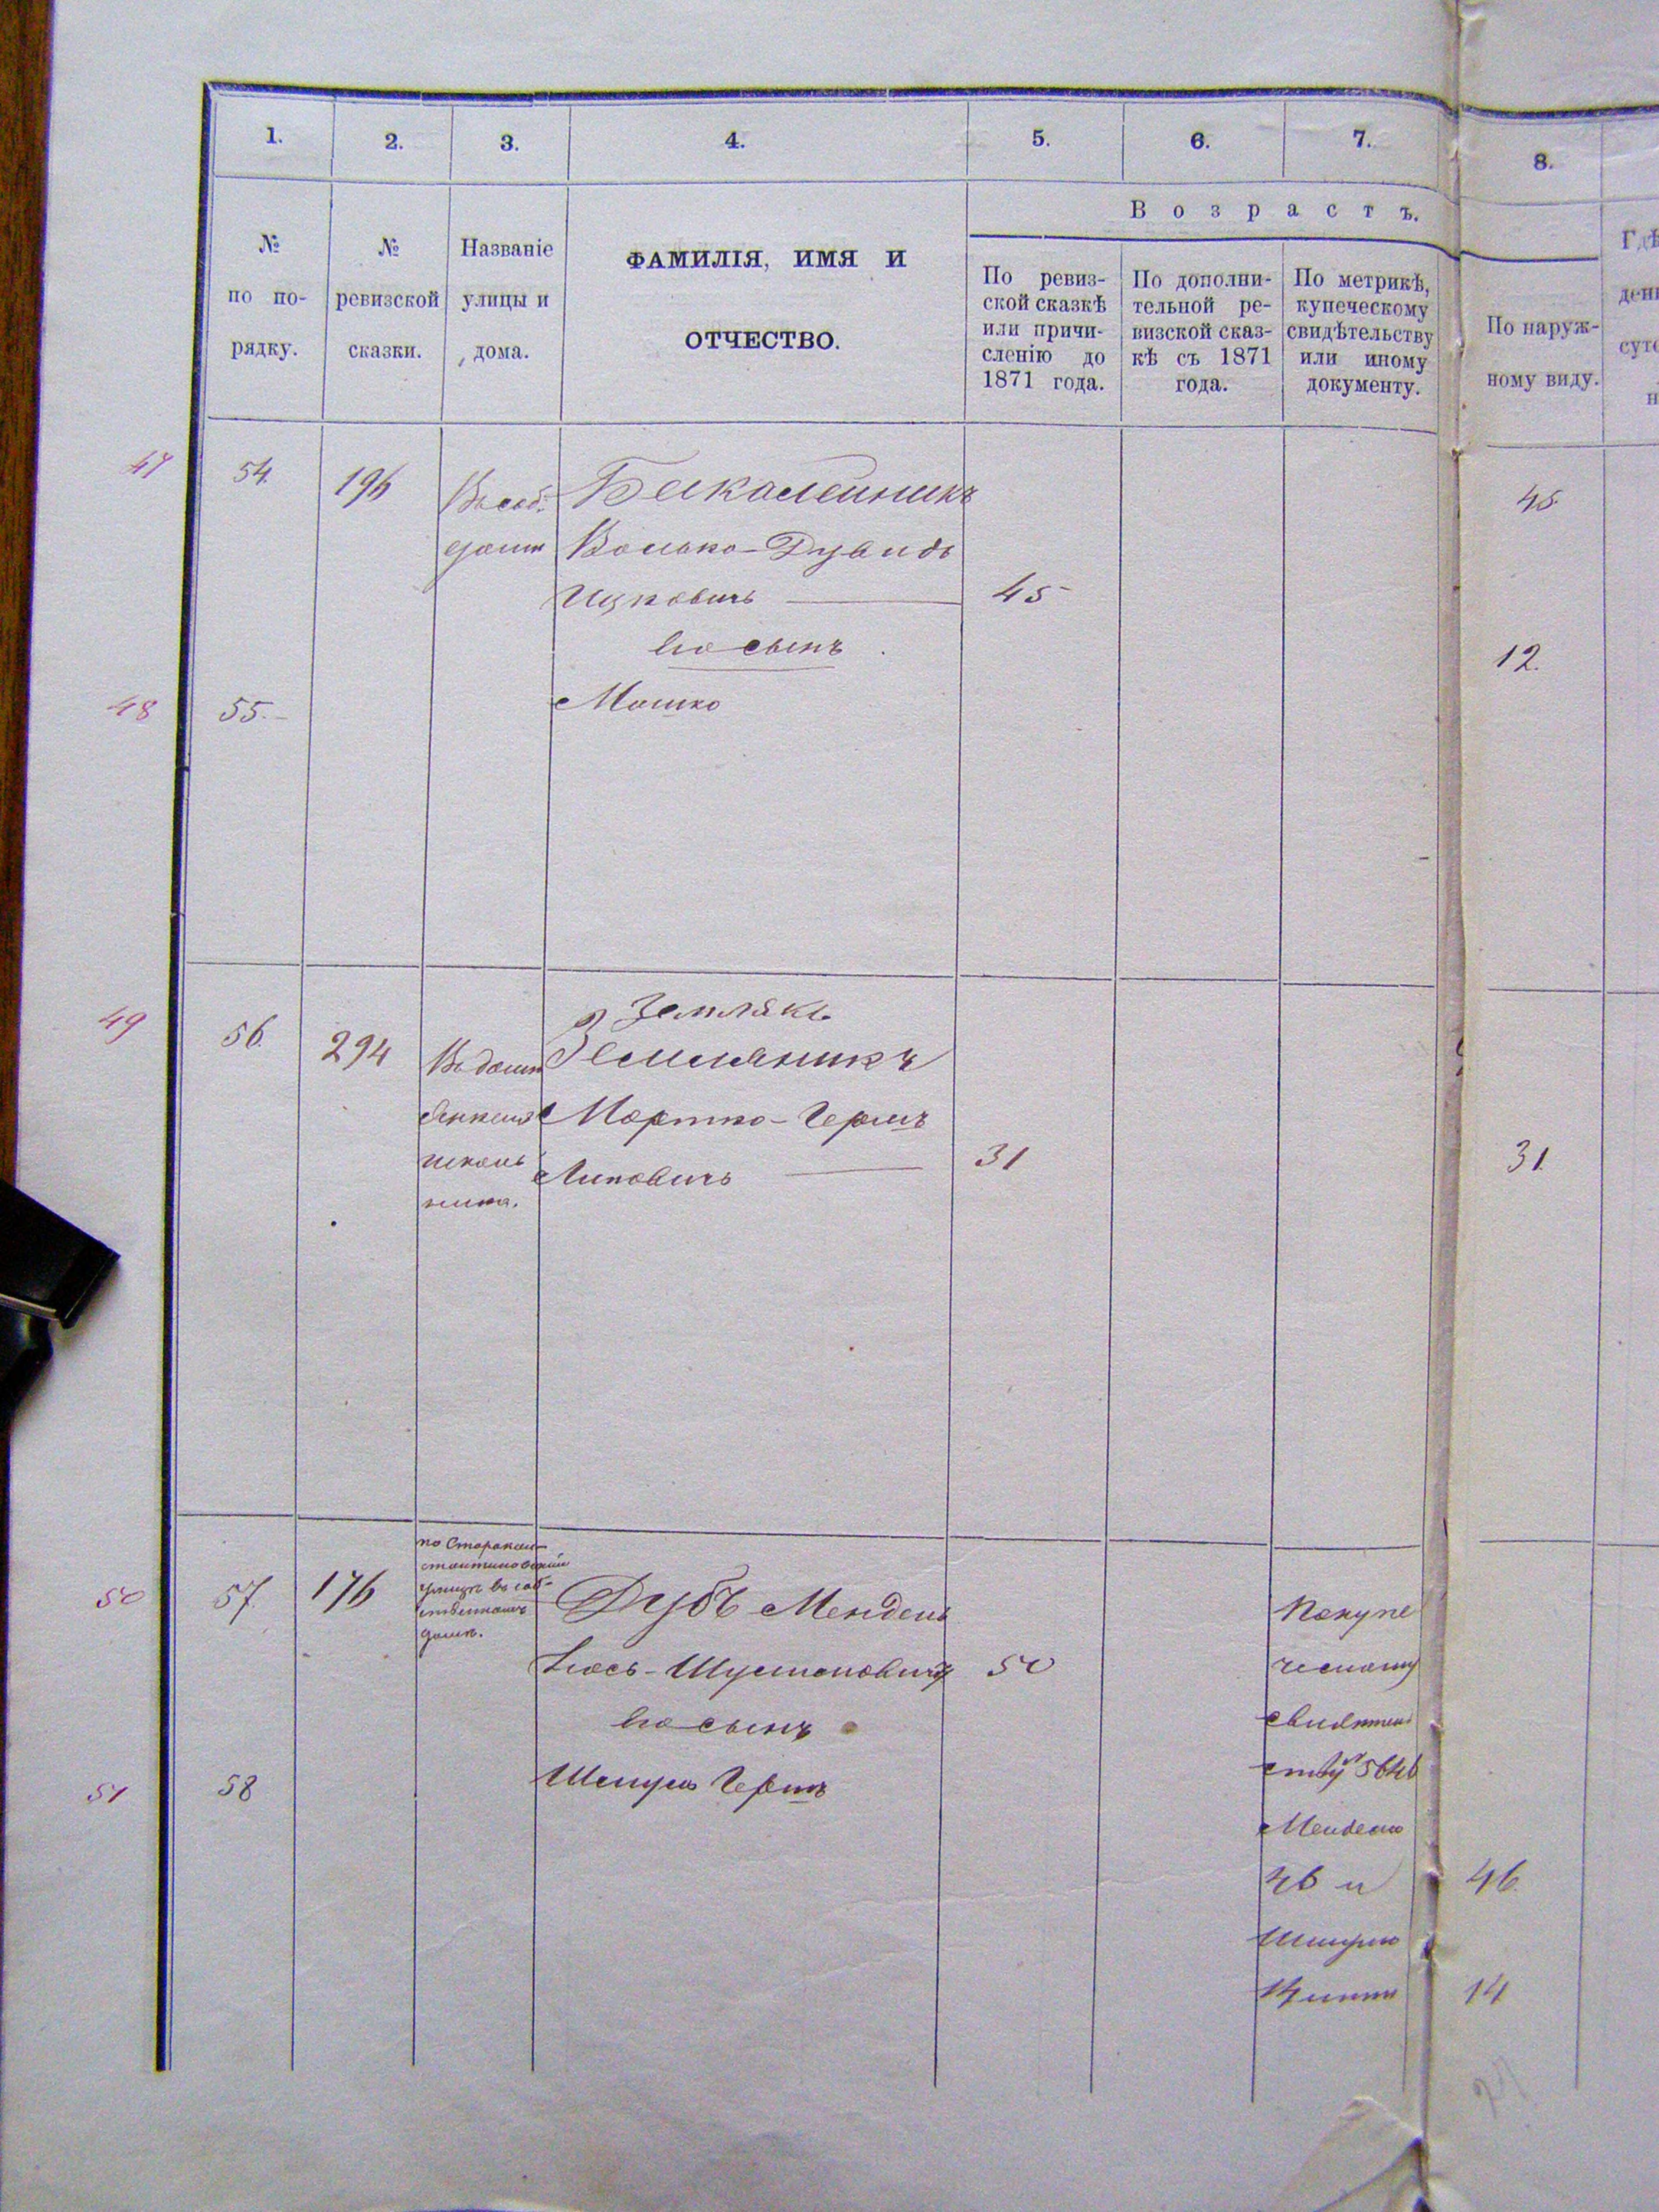 1.
2.
3.
4.
5.
6.
7.
8.
№
по по-
рядку.
№
ревизской
сказки.
Названіе
улицы и
дома.
ФАМИЛІЯ, ИМЯ И
ОТЧЕСТВО.
Возрастъ.
По ревиз-
ской сказкѣ
или причи-
сленію до
1871 года.
По дополни-
тельной ре-
визской сказ-
кѣ съ 1871
года.
По метрикѣ,
купеческому
свидѣтельству
или иному
документу.
По наруж-
ному виду.
47
54.
196
Въ соб.
домѣ
Бакалейникъ
Волько-Дувидъ
Ицковичъ
45
45
его сынъ
48
55.
Мошко
12.
49
56.
294
Въ домѣ
Янкеля
школь
ника.
Землякъ
Земляникъ
Мортко-Гершъ
Липовичъ
31
31.
50
57.
176
по Старокон-
стантиновской
улицѣ въ соб-
ственномъ
домѣ.
Дубъ Мендель
Іось-Шулимовичъ
50
его сынъ
51
58
Шмуль Гершъ
По купе
ческому
свидѣтель
ству № 5646
Менделю
46 и
Шмулю
14 лѣтъ
46.
14